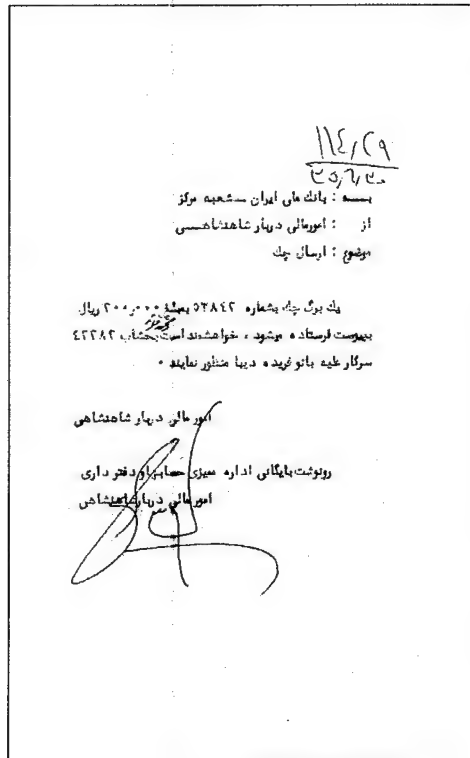 ۱۱٤٫۲۹
۳۵٫٦٫۳۰
به : بانك ملی ایران ـ شعبه مرکز
از : امورمالی دربار شاهنشاهی
موضوع : ارسال چك
یك برگ چك بشماره ۵۳۸٤۲ بمبلغ ۲۰۰٫۰۰۰ ریال
بپیوست فرستاده میشود ، خواهشمند است بحساب ٤۲۲۸۲
سرکار علیه بانو فریده دیبا منظور نمایند ۰
امور مالی دربار شاهنشاهی
رونوشت بایگانی اداره ممیزی حسابها و دفتر داری
امور مالی دربار شاهنشاهی